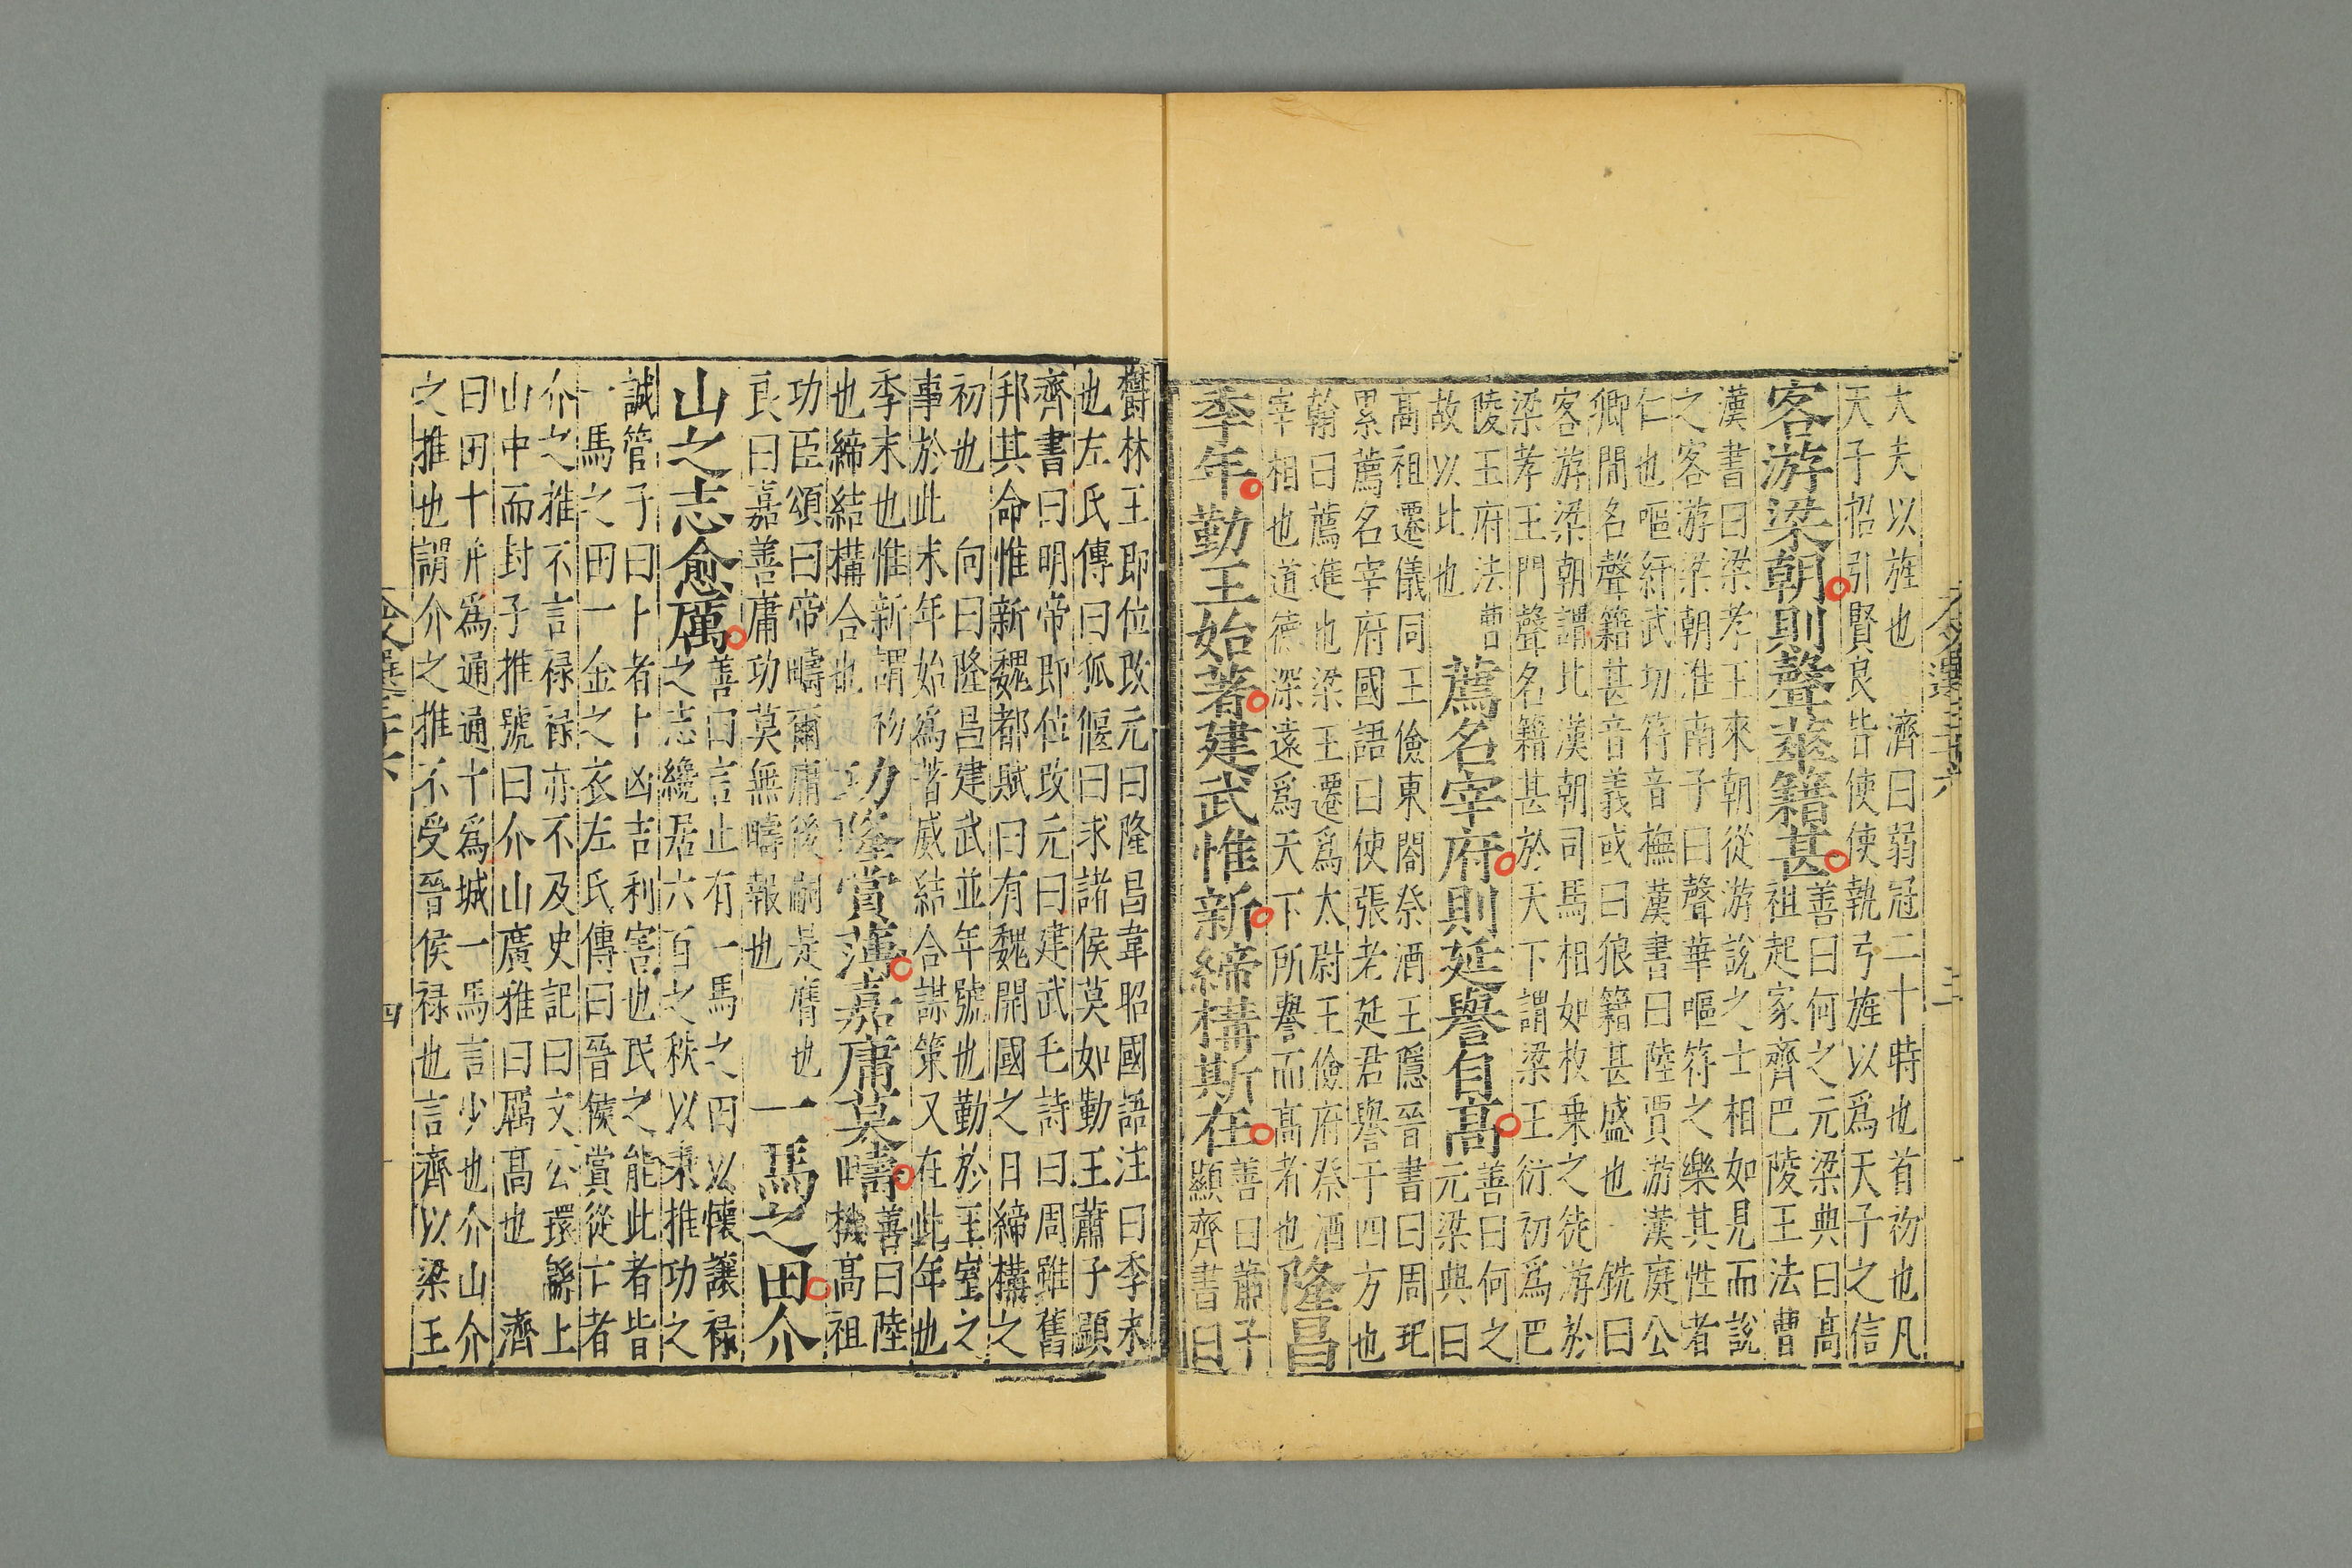 大夫以旌也 濟曰弱冠二十時也首初也凡
天子招引賢良皆使使執弓旌以爲天子之信
客游梁朝則聲華籍甚
善曰何之元梁典曰高
祖起家齊巴陵王法曹
漢書曰梁孝王來朝從游說之士相如見而說
之客游梁朝淮南子曰聲華嘔符之樂其性者
仁也嘔紆武切符音撫漢書曰陸賈游漢庭公
卿間名聲籍甚音義或曰狼籍甚盛也 銑曰
客游梁朝謂比漢朝司馬相如枚乗之徒游於
梁孝王門聲名籍甚於天下謂梁王衍初爲巴
陵王府法曹
故以比也
薦名宰府則延譽自高
善曰何之
元梁典曰
高祖遷儀同王儉東閤祭酒王隱晉書曰周玘
累薦名宰府國語曰使張老延君譽于四方也
翰曰薦進也梁王遷爲太尉王儉府祭酒
宰相也道德深遠爲天下所譽而高者也
隆昌
季年勤王始著建武惟新締構斯在
善曰蕭子
顯齊書曰
欝林王即位改元曰隆昌韋昭國語注曰季末
也左氏傳曰狐偃曰求諸侯莫如勤王蕭子顯
齊書曰明帝即位改元曰建武毛詩曰周雖舊
邦其命惟新魏都賦曰有魏開國之日締構之
初也 向曰隆昌建武並年號也勤於王室之
事於此末年始爲著威結合謀策又在此年也
季末也惟新謂初
也締結構合也
功隆賞薄嘉庸莫疇
善曰陸
機高祖
功臣頌曰帝疇爾庸後嗣是膺也
良曰嘉善庸功莫無疇報也
一馬之田介
山之志愈厲
善曰言止有一馬之田以懷讓祿
之志纔居六百之秩以秉推功之
誠管子曰卜者卜凶吉利害也民之能此者皆
一馬之田一金之衣左氏傳曰晉侯賞從亡者
介之推不言祿祿亦不及史記曰文公環緜上
山中而封子推號曰介山廣雅曰厲高也 濟
曰田十井爲通通十爲城一馬言少也介山介
之推也謂介之推不受晉侯祿也言齊以梁王
四